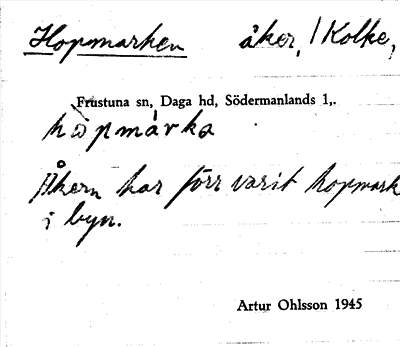 Hopmarken åker, / Kolke,
Frustuna sn, Daga hd, Södermanlands l,.
håpmárka
Åkern har förr varit hopmark
i byn.
Artur Ohlsson 1945